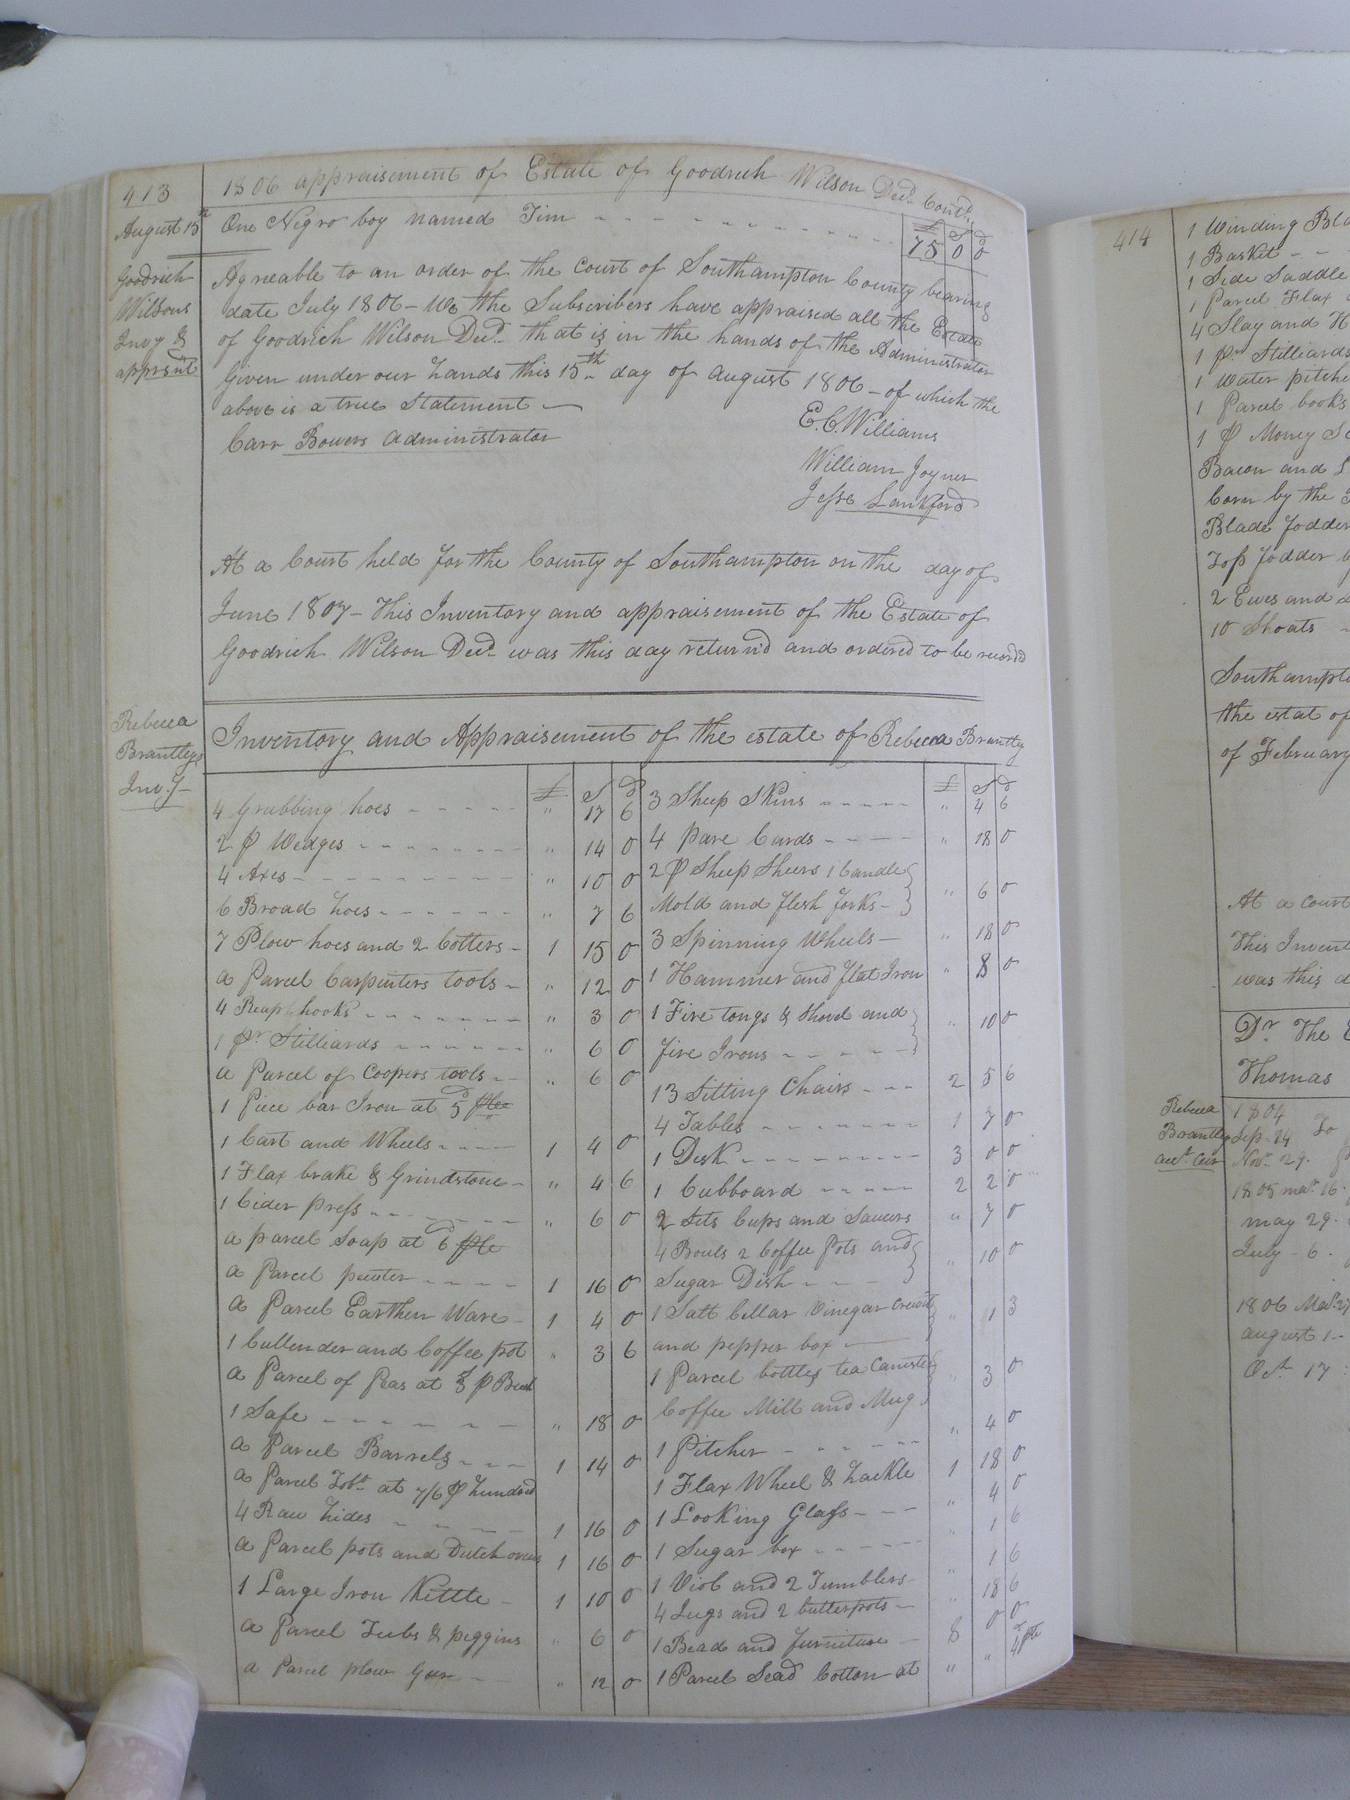 413
1806 appraisement of Estate of Goodrich Wilson Decd. Contd.
August 15th
One Negro boy named Jim - - - - - - - - - £ 75 S 0 d 0
Goodrich
Wilsons
Invy &
apprsmt
Agreeable to an order of the court of Southampton County bearing
date July 1806 - We the Subscribers have appraised all the Estate
of Goodrich Wilson Decd. that is in the hands of the Administrator
Given under our hands this 15th day of august 1806 - of which the
above is a true Statement -
Carr Bowers administrator
E. C. Williams
William Joyner
Jesse Lankford
At a Court held for the County of Southampton on the day of
June 1807 - This Inventory and appraisement of the Estate of
Goodrich Wilson Decd. was this day return'd and ordered to be recorded
Rebecca
Brantleys
Invy
Inventory and Appraisement of the estate of Rebecca Brantley
£ S d
4 Grubbing hoes - - - - " 17 6
2 P Wedges - - - - - - " 14 0
4 Axes - - - - - - - " 10 0
6 Broad hoes - - - - - " 7 6
7 Plow hoes and 2 Cotters - 1 15 0
a Parcel Carpenters tools - " 12 0
4 Reap hooks - - - - - " 3 0
1 Pr Stilliards - - - - - " 6 0
a Parcel of Coopers tools - " 6 0
1 Piece bar Iron at 5d
1 Cart and Wheels - - - 1 4 0
1 Flax brake & Grindstone - " 4 6
1 Cider Press - - - - - " 6 0
a parcel Soap at 6d
a Parcel pewter - - - - 1 16 0
a Parcel Earthen Ware - 1 4 0
1 Cullender and Coffee pot " 3 6
a Parcel of Peas at 3
1 Safe - - - - - - " 18 0
a Parcel Barrels - - - 1 14 0
a Parcel at 7/6 P hundred
4 Raw hides - - - - 1 16 0
a Parcel pots and Dutch ovens 1 16 0
1 Large Iron Kettle - 1 10 0
a Parcel Tubs & peggins " 6 0
a Parcel plow Gear - " 12 0
£ S d
3 Sheep Skins - - - - - " 4 6
4 pare Cards - - - - " 18 0
2 P Sheep Sheers 1 Candle
Mold and flesh forks - " 6 0
3 Spinning Wheels - " 18 0
1 Hammer and flat Iron " 8 0
1 Fire tongs & Shovel and
fire Irons - - - - - " 10 0
13 Sitting Chairs - - - 2 5 6
4 Tables - - - - - - 1 7 0
1 Desk - - - - - - - 3 0 0
1 Cubboard - - - - - 2 2 0
2 Sets Cups and Saucers " 7 0
4 Bouls 2 Coffee Pots and
Sugar Dish - - - - " 10 0
1 Salt Cellar Vinegar
and pepper box - " 1 3
1 Parcel bottles tea Canister
Coffee Mill and Mug " 3 0
1 Pitcher - - - - - " 4 0
1 Flax Wheel & hackle 1 18 0
1 Looking Glass - - - " 4 0
1 Sugar box - - - - - " 1 6
1 Viol and 2 Tumblers - " 1 6
4 Jugs and 2 butterpots - " 18 6
1 Bead and furniture - 8 0 0
1 Parcel Sead Cotton at " "
414
1 Winding
1 Basket - -
1 Side Saddle
1 Parcel Flax
4 Slay and
1 pr Stilliards
1 Water pitcher
1 Parcel books
1 P Money
Bacon and
Corn by the
Blade Fodder
Top fodder
2 Ewes and
10 Shoats -
the estat of
of February
At a Court
was this
Dr. The
Thomas
Rebecca
Brantley
1804
Sep. 14 To
Nov. 29.
1805 mar 16.
may 29.
July - 6.
1806
august 1 -
Oct 17